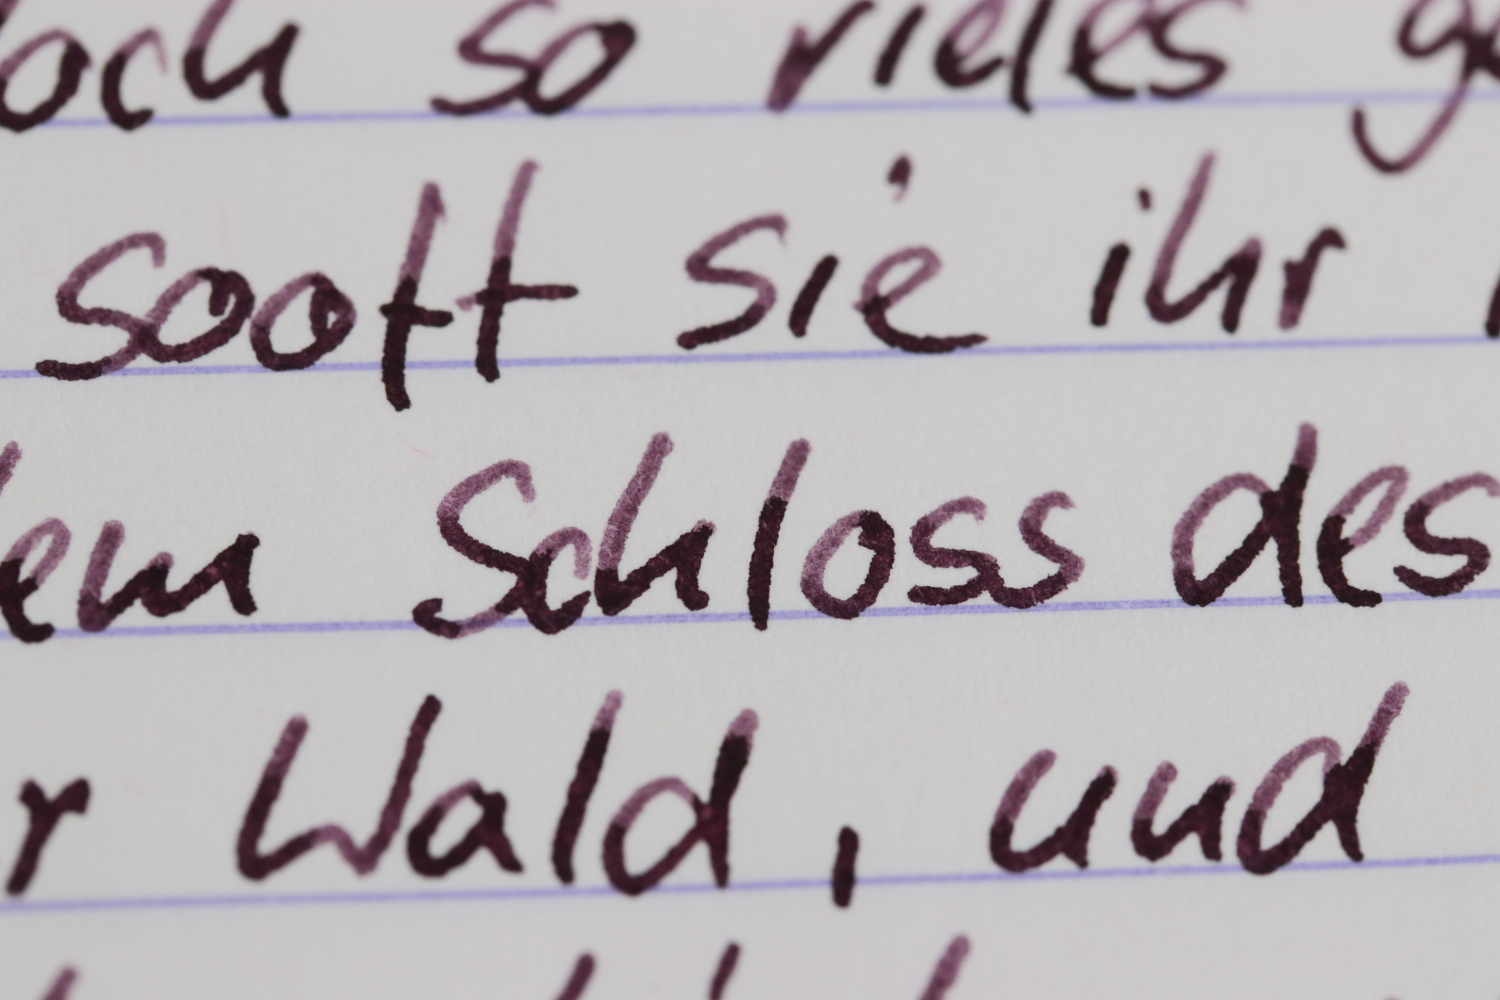 och so vieles ge
sooft sie ihr
em Schloss des
r Wald, und